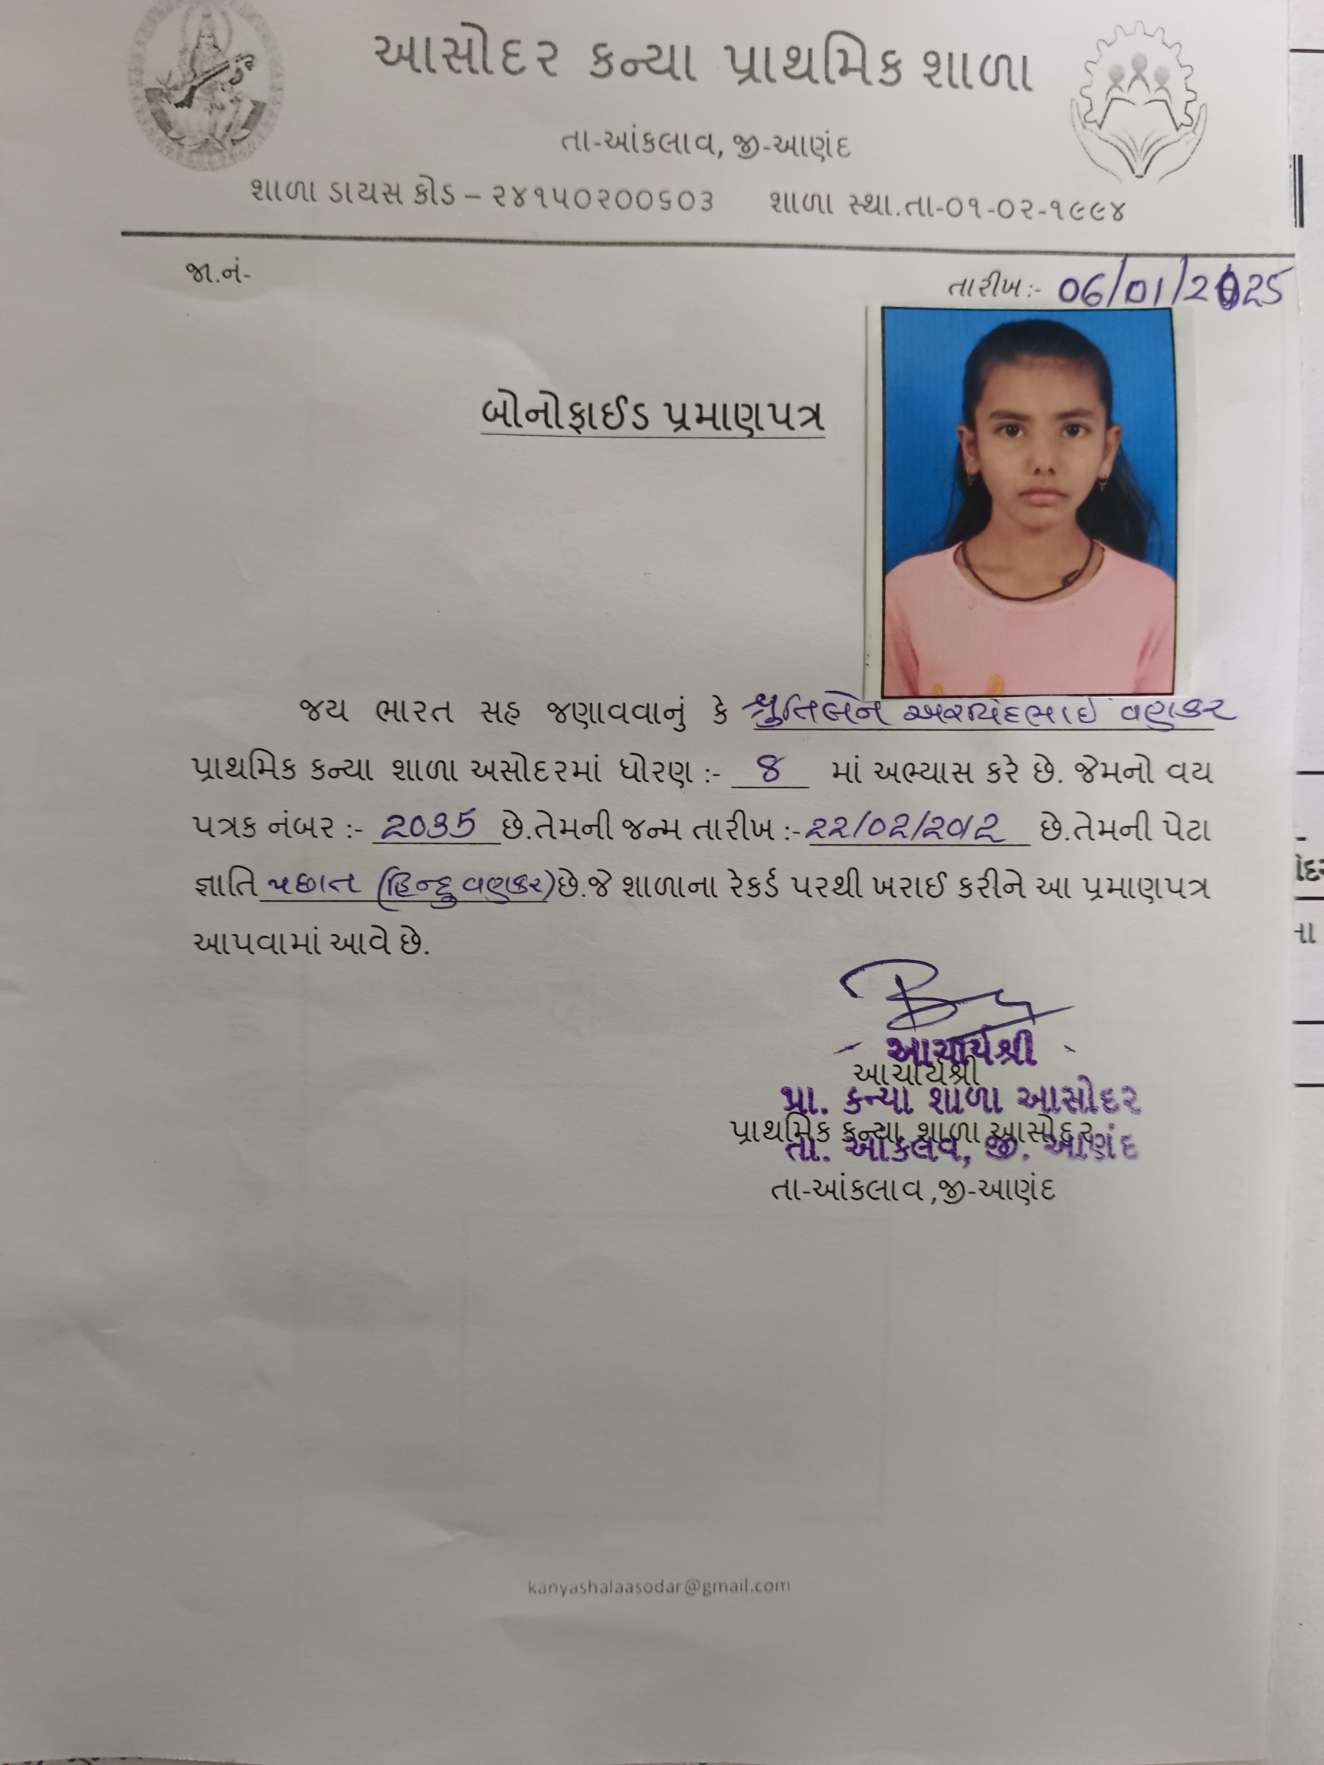 આસોદર કન્યા પ્રાથમિક શાળા
તા-આંકલાવ, જી-આણંદ
શાળા ડાયસ કોડ – ૨૪૧૫૦૨૦૦૬૦૩ શાળા સ્થા.તા-૦૧-૦૨-૧૯૯૪
જા.નં-
તારીખ:- 06/01/2025
બોનોફાઈડ પ્રમાણપત્ર
જય ભારત સહ જણાવવાનું કે શ્રુતિબેન અરવિંદભાઈ વણકર
પ્રાથમિક કન્યા શાળા અસોદરમાં ધોરણ :- ૪ માં અભ્યાસ કરે છે. જેમનો વય
પત્રક નંબર :- 2035 છે.તેમની જન્મ તારીખ :- ૨૨/02/2012 છે.તેમની પેટા
જ્ઞાતિ પછાત (હિન્દુ વણકર) છે.જે શાળાના રેકર્ડ પરથી ખરાઈ કરીને આ પ્રમાણપત્ર
આપવામાં આવે છે.
આચાર્યશ્રી
આચાર્યશ્રી
પ્રા. કન્યા શાળા આસોદર
પ્રાથમિક કન્યા શાળા આસોદર
તા. આંકલાવ, જી. આણંદ
તા-આંકલાવ ,જી-આણંદ
kanyashalaasodar@gmail.com